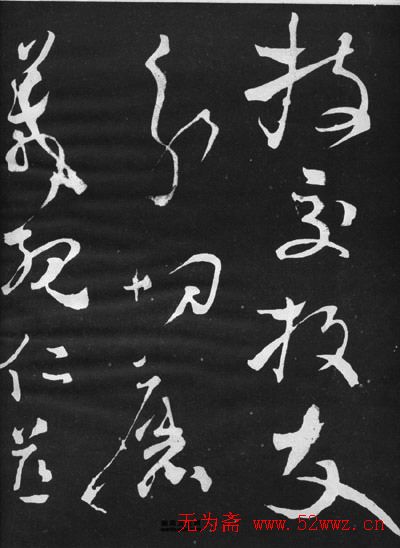 枝交投友
分切磨
箴規仁慈
无为斋 www.52wwz.cn